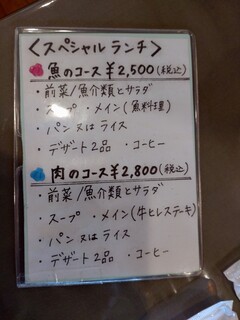 ＜スペシャルランチ＞
魚のコース ¥2,500(税込)
・前菜/魚介類とサラダ
・スープ ・メイン(魚料理)
・パン又はライス
・デザート2品 ・コーヒー
肉のコース ¥2,800(税込)
・前菜/魚介類とサラダ
・スープ ・メイン(牛ヒレステーキ)
・パン又はライス
・デザート2品 ・コーヒー